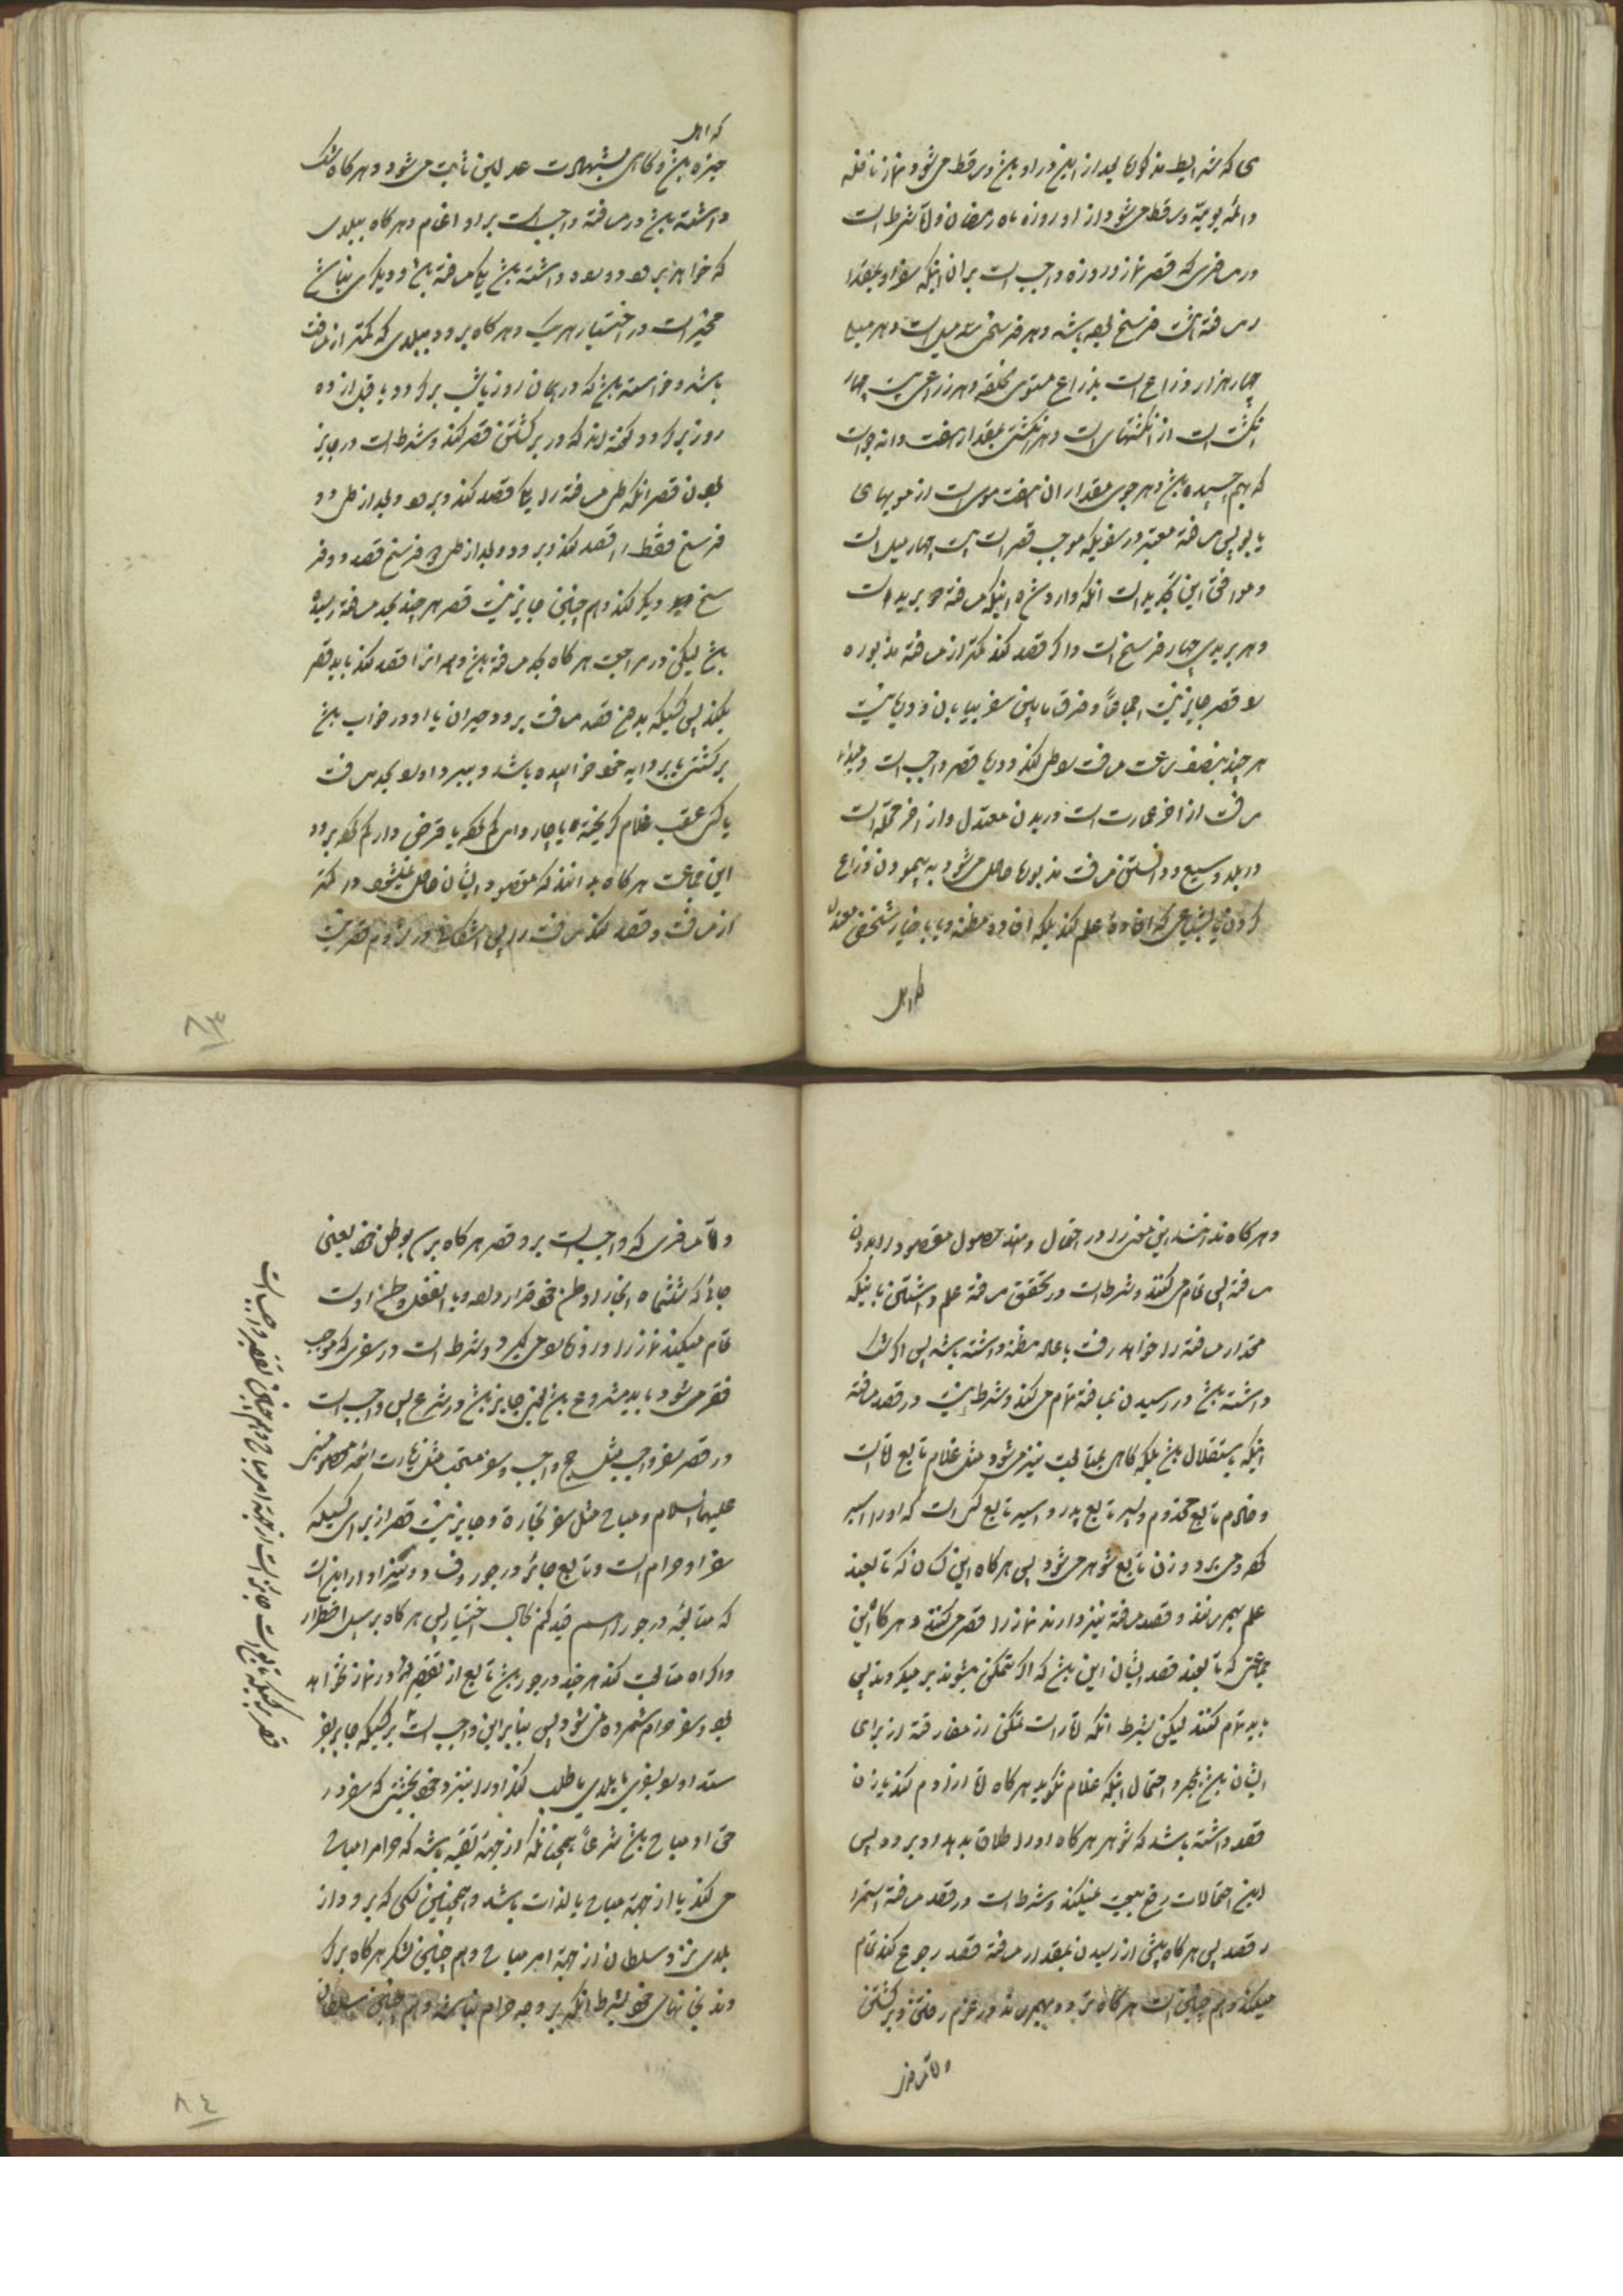 ی که شرایط مذکوره بعد از این در او باشد و ساقط می شود نماز نافله
دائمه یومیه و ساقط می شود از او روزه ماه رمضان و شرط است
در مسافری که قصر نماز و روزه واجب است بر آن اینکه سفر او بقدر
مسافة هشت فرسخ بوده باشد و هر فرسخی سه میل است و هر میل
چهار هزار ذراع است بذراع مستوی خلقه و هر ذراعی بیست چهار
انگشت است از انگشتهای دست و هر انگشتی بمقدار هفت دانه جو است
که بهم چسبیده باشد و هر جوی مقدار آن هفت مو است از مویهای
یابو پس مسافة معتبر در سفریکه موجب قصر است بیست چهار میل است
و موافق این تحدید است آنکه وارد شده اینکه مسافة دو برید است
و هر بریدی چهار فرسخ است و اگر قصد کند کمتر از مسافة مذبوره
قصر جایز نیست اجماعاً و فرق مابین سفر بیابان و دریا نیست
هر چند بنصف ساعت مسافت را طی کند در دریا قصر واجب است و مبداء
مسافت از آخر عمارت است در بلدان معتدل و از آخر محله است
در بلد وسیع و دانستن مسافت مذبوره حاصل می شود به پیمودن و ذراع
کردن یا بشیاعی که افاده علم کند بلکه افاده مظنه و یا باخبار شخصی معتدل
که اهل
که اهل
خبره باشد و گاهی بشهادت عدلین ثابت می شود و هر گاه شک
داشته باشد در مسافة واجب است بر او اتمام و هر گاه ببلدی
که خواهد برود دو راه داشته باشد یکی مسافة باشد و دیگری نباشد
مخیر است در اختیار هر یک و هر گاه برود ببلدی که کمتر از مسافت
باشد و خواسته باشد که در همان روز یا شب برگردد یا قبل از ده
روز برگردد گفته اند که در برگشتن قصر کند و شرط است در جایز
بودن قصر آنکه طی مسافة را یکجا قصد کند و برود و بعد از طی دو
فرسخ فقط را قصد کند و برود و بعد از طی دو فرسخ قصد دو فر
سخ دیگر کند و هم چنین جایز نیست قصر هر چند بحد مسافة رسیده
باشد لیکن در مراجعت هر گاه بحد مسافة باشد و همه آنرا قصد کند باید قصر
بکند پس کسیکه بدون قصد مسافت برود حیران یا او در خواب باشد
بر کشتی یا بر دابه خود خوابیده باشد و ببرد او را بحد مسافت
یا کسی عقب غلام گریخته یا چاروای گم کرده یا قرض دار گم کرده برود
این جماعت هر گاه بدانند که مقصود ایشان حاصل نمیشود در کمتر
از مسافت و قصد کند مسافت را پس اشکالی در لزوم قصر نیست
۸۳
و هر گاه ندانند این معنی را در احتمال دهند حصول مقصود را بدون
مسافة پس تمام می کنند و شرط است در تحقق مسافة علم داشتن باینکه
مقدار مسافة را خواهد رفت یا علم مظنه داشته باشد پس اگر شک
داشته باشد در رسیدن بمسافة تمام می کند و شرط نیست در قصد مسافة
اینکه باستقلال باشد بلکه گاهی بمتابعت نیز می شود مثل غلام تابع آقا است
و خادم تابع مخدوم و پسر تابع پدر و اسیر تابع کسی است که او را اسیر
کرده می برد و زن تابع شوهر می شود پس هر گاه این کسان که تابعند
علم بهم رسانند و قصد مسافة نیز دارند نماز را قصر می کنند و هر گاه این
جماعتی که تابعند قصد ایشان این باشد که اگر متمکن بشوند بر میگردند پس
باید تمام کنند لیکن بشرط آنکه امارات تمکن از مفارقة از برای
ایشان باشد بمجرد احتمال اینکه غلام بگوید هر گاه آقا آزادم کند یا زن
قصد داشته باشد که شوهر هر گاه او را طلاق بدهد او برود پس
این احتمالات رفع تبعیت نمیکند و شرط است در قصد مسافة استمرا
ر قصد پس هر گاه پیش از رسیدن بمقدار مسافة قصد رجوع کند تمام
میکند و هم چنین است هر گاه تردد بهم رساند در عزم رفتن و برگشتن
و اما مسافر
و اما مسافری که واجب است بر او قصر هر گاه برسد بوطن خود یعنی
جائی که ششماه آنجا را وطن خود قرار داده و یا بالفعل وطن اوست
تمام میکند نماز را و روزه را می گیرد و شرط است در سفری که موجب
قصر می شود باید مشروع باشد یعنی جایز باشد در شرع پس واجب است
در قصر سفر واجب مثل حج واجب و سفر مستحب مثل زیارت ائمه معصومین
علیهم السلام و مباح مثل سفر تجارة و جایز نیست قصر از برای کسیکه
سفر او حرام است و تابع جائر در جور و فساد
که متابعة در جور را قید کنم بحال اختیار پس هر گاه بر سبیل اضطرار
و اکراه متابعت کند هر چند در جور باشد تابع از تقصیر در نماز نخواهد
بود و سفر حرام شمرده نمی شود پس بنابراین واجب است بر کسیکه جابر بفر
ستد او را بقریه یا بلدی یا طلب کند او را بنزد خود بحیثیتی که سفر در
حق او مباح باشد شرعاً همچنانکه از جهة تقیه باشد که حرام را مباح
می کند یا از جهة مباح بالذات باشد و همچنین کسی که برود از
بلدی نزد سلطان از جهة امر مباح و هم چنین لشکر هر گاه برگر
دند بخانهای خود بشرط آنکه بر وجه حرام نباشد و هم چنین سلطان
۸٤